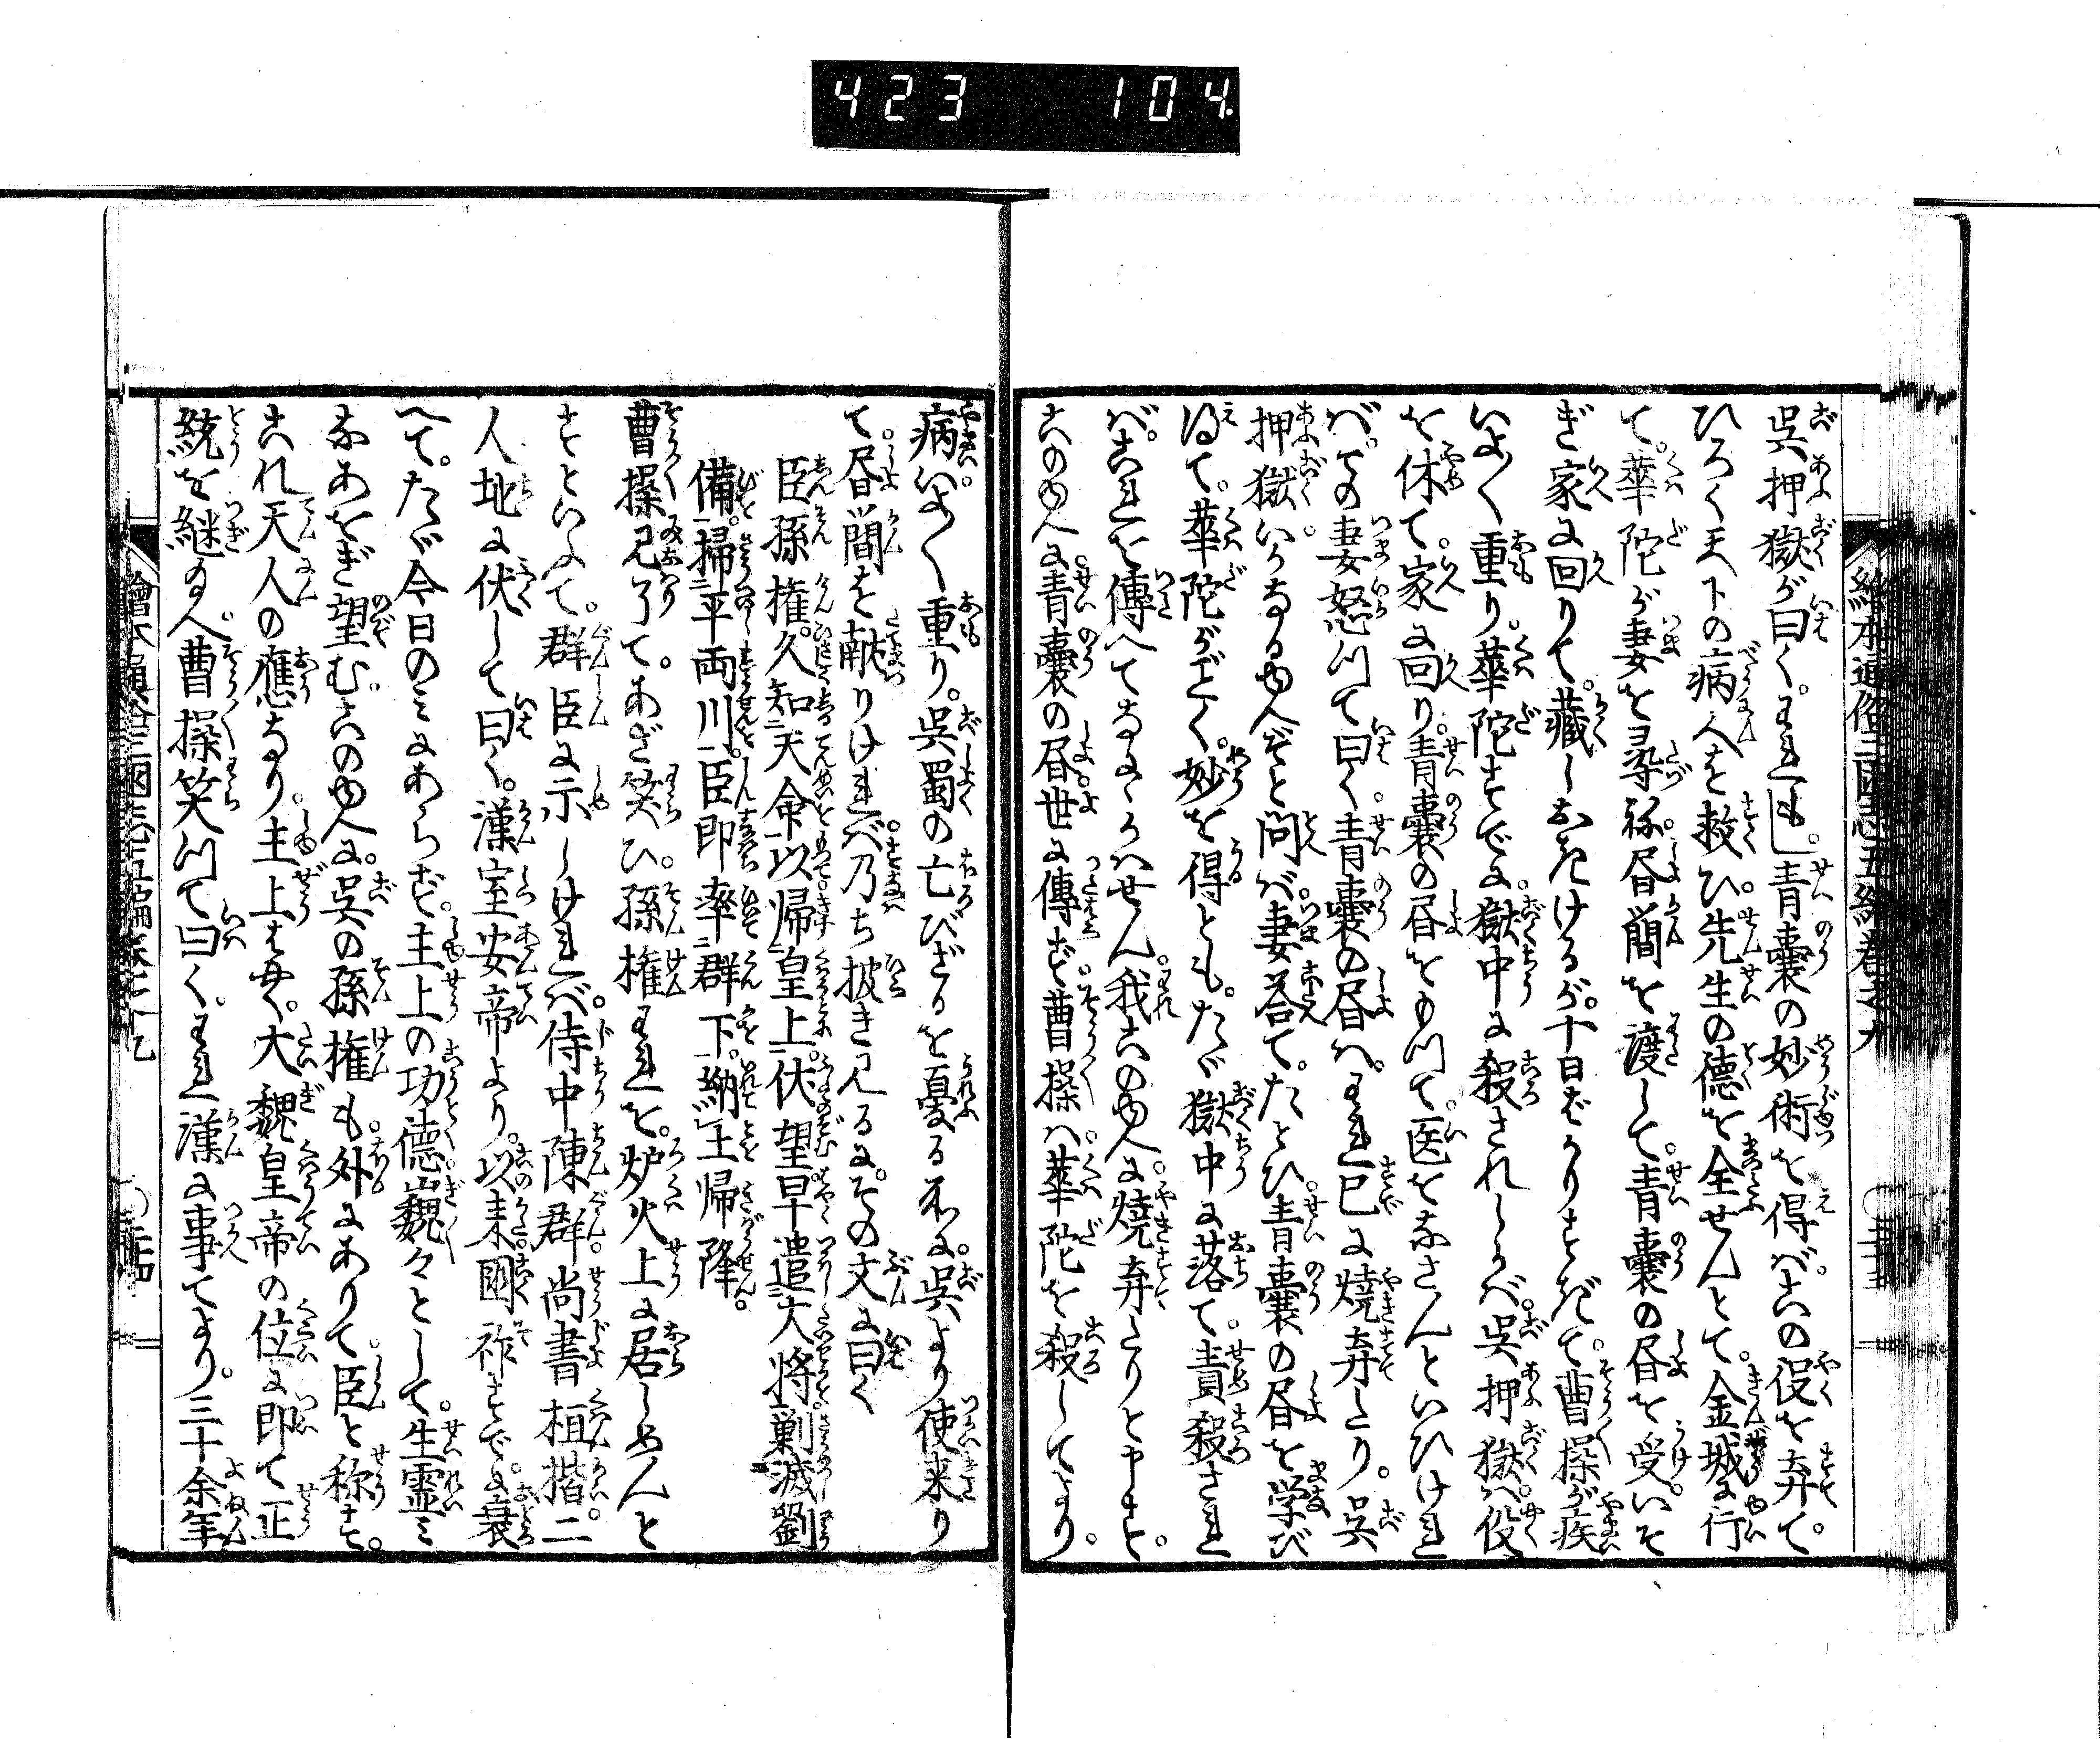 423 104
繪本通俗三國志五編巻之九
呉押獄が曰く。われもし青嚢の妙術を得ば。この役を弃て。
ひろく天下の病人を救ひ。先生の徳を全せんとて。金城に行
て。華陀が妻を尋祢。書簡を渡して。青嚢の書を受。いそ
ぎ家に回りて。藏しおきけるが。十日ばかりすぎて。曹操が疾
いよ〳〵重り。華陀すでに獄中に殺されしかバ。呉押獄ハ役
を休て。家に回り。青嚢の書をもつて医をなさんといひけれ
バ。その妻怒つて曰く。青嚢の書ハ。われ已に焼弃たり。呉
押獄いかなるゆへぞと問バ。妻荅て。たとひ青嚢の書を学び
得て。華陀がごとく。妙を得とも。たゞ獄中に落て責殺され
バ。これを傳へてなにかハせん。我このゆへに焼弃たりと申す。
このゆへに青嚢の書。世に傳ず。曹操ハ華陀を殺してより。
病いよ〳〵重り。呉蜀の亡びざるを憂る所に。呉より使来り
て。書簡を献りけれバ。乃ち披き見るに。その文に曰く
臣孫權。久知天命以帰皇上。伏望早遣大将剿滅劉
備。掃平両川。臣即率群下。納土帰降。
曹操見了て。あざ笑ひ。孫權われを。炉火上に居しめんと
すといふて。群臣に示しけれバ。侍中陳群。尚書桓揩二
人地に伏して曰く。漢室安帝より。以来國祚すでに衰
へて。たゞ今日のミにあらず。主上の功徳巍々として。生霊ミ
なあをぎ望む。このゆへに。呉の孫權も外にありて。臣と称す。
これ天人の應なり。主上はやく。大魏皇帝の位に即て正
統を継玉へ。曹操笑つて曰く。われ漢に事てより。三十余年
繪本通俗三國志五編巻之九